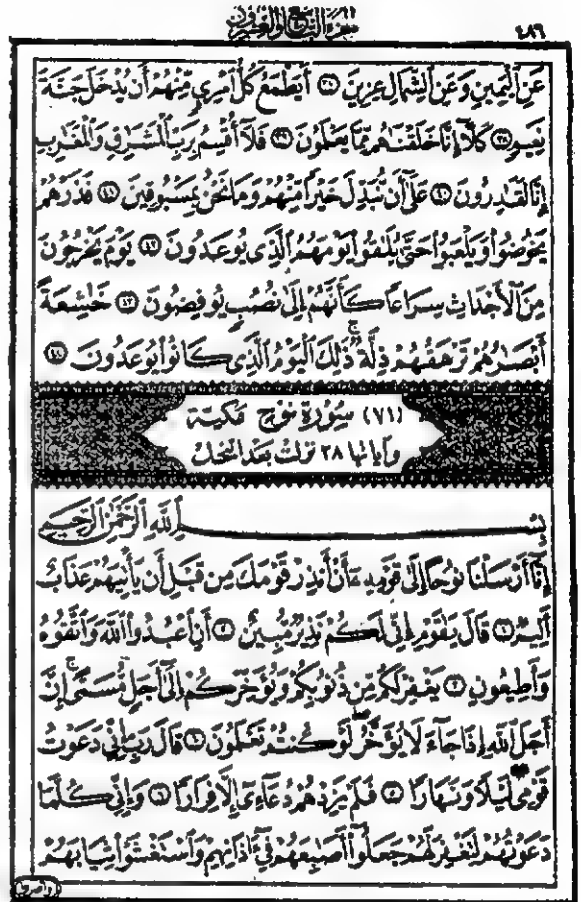 سورة التاسع والعشرون
٤٨٦
عَنِ ٱلْيَمِينِ وَعَنِ ٱلشِّمَالِ عِزِينَ ٣٧ أَيَطْمَعُ كُلُّ ٱمْرِئٍ مِّنْهُمْ أَن يُدْخَلَ جَنَّةَ
نَعِيمٍ ٣٨ كَلَّآ إِنَّا خَلَقْنَٰهُم مِّمَّا يَعْلَمُونَ ٣٩ فَلَآ أُقْسِمُ بِرَبِّ ٱلْمَشَٰرِقِ وَٱلْمَغَٰرِبِ
إِنَّا لَقَٰدِرُونَ ٤٠ عَلَىٰٓ أَن نُّبَدِّلَ خَيْرًا مِّنْهُمْ وَمَا نَحْنُ بِمَسْبُوقِينَ ٤١ فَذَرْهُمْ
يَخُوضُوا۟ وَيَلْعَبُوا۟ حَتَّىٰ يُلَٰقُوا۟ يَوْمَهُمُ ٱلَّذِى يُوعَدُونَ ٤٢ يَوْمَ يَخْرُجُونَ
مِنَ ٱلْأَجْدَاثِ سِرَاعًا كَأَنَّهُمْ إِلَىٰ نُصُبٍ يُوفِضُونَ ٤٣ خَٰشِعَةً
أَبْصَٰرُهُمْ تَرْهَقُهُمْ ذِلَّةٌ ۚ ذَٰلِكَ ٱلْيَوْمُ ٱلَّذِى كَانُوا۟ يُوعَدُونَ ٤٤
(٧١) سُورَة نُوحٍ مَكيّة
وَآياتها ٢٨ نزلت بَعْدَ النحل
بِسْمِ ٱللَّهِ ٱلرَّحْمَٰنِ ٱلرَّحِيمِ
إِنَّآ أَرْسَلْنَا نُوحًا إِلَىٰ قَوْمِهِۦٓ أَنْ أَنذِرْ قَوْمَكَ مِن قَبْلِ أَن يَأْتِيَهُمْ عَذَابٌ
أَلِيمٌ ١ قَالَ يَٰقَوْمِ إِنِّى لَكُمْ نَذِيرٌ مُّبِينٌ ٢ أَنِ ٱعْبُدُوا۟ ٱللَّهَ وَٱتَّقُوهُ
وَأَطِيعُونِ ٣ يَغْفِرْ لَكُم مِّن ذُنُوبِكُمْ وَيُؤَخِّرْكُمْ إِلَىٰٓ أَجَلٍ مُّسَمًّى ۚ إِنَّ
أَجَلَ ٱللَّهِ إِذَا جَآءَ لَا يُؤَخَّرُ ۖ لَوْ كُنتُمْ تَعْلَمُونَ ٤ قَالَ رَبِّ إِنِّى دَعَوْتُ
قَوْمِى لَيْلًا وَنَهَارًا ٥ فَلَمْ يَزِدْهُمْ دُعَآءِىٓ إِلَّا فِرَارًا ٦ وَإِنِّى كُلَّمَا
دَعَوْتُهُمْ لِتَغْفِرَ لَهُمْ جَعَلُوٓا۟ أَصَٰبِعَهُمْ فِىٓ ءَاذَانِهِمْ وَٱسْتَغْشَوْا۟ ثِيَابَهُمْ
وأصروا